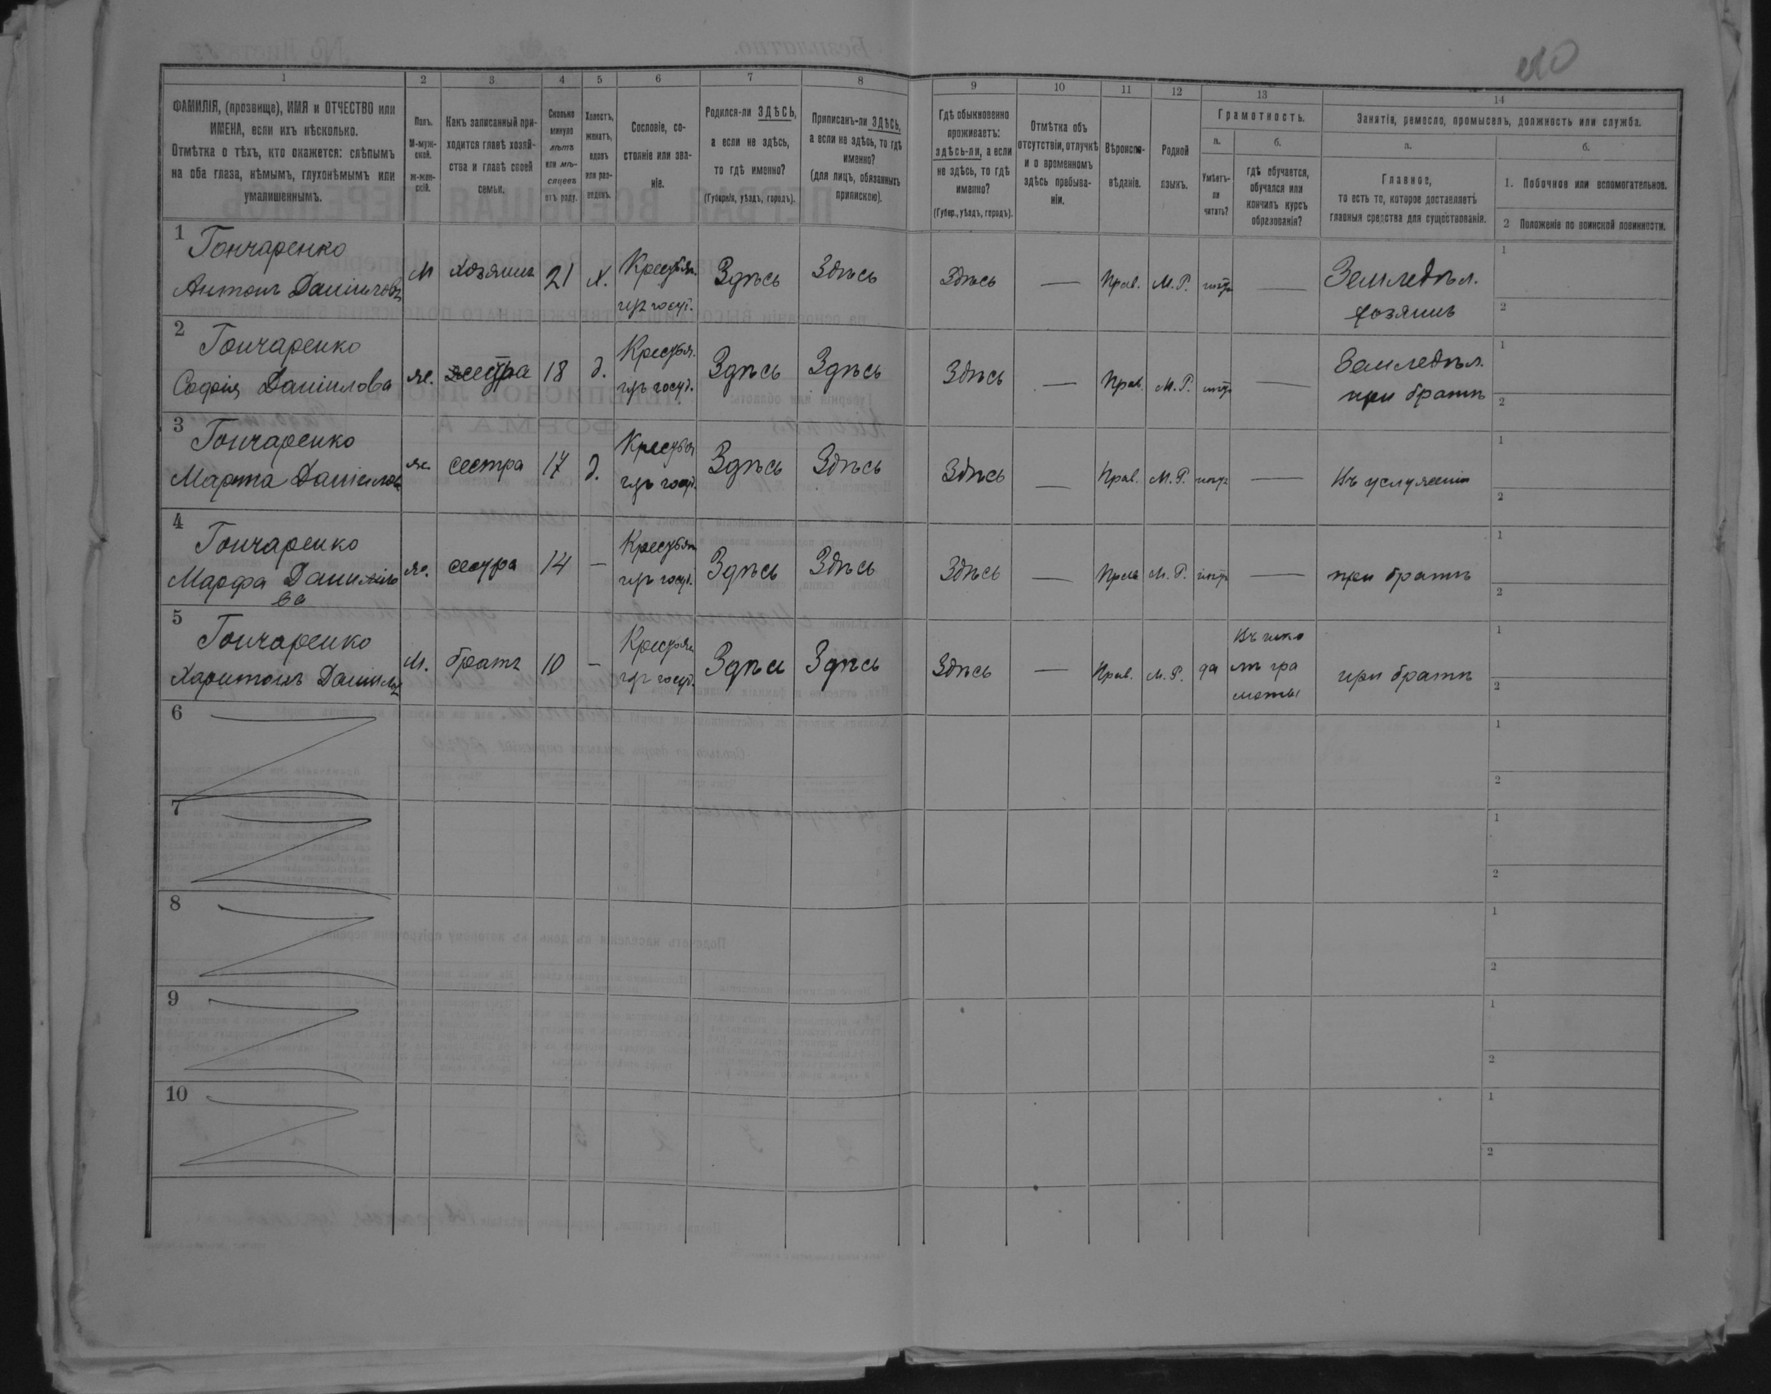 1 2 3 4 5 6 7 8 9 10 11 12 13 14
ФАМИЛІЯ, (прозвище), ИМЯ и ОТЧЕСТВО или
ИМЕНА, если ихъ нѣсколько.
Отмѣтка о тѣхъ, кто окажется: слѣпымъ
на оба глаза, нѣмымъ, глухонѣмымъ или
умалишеннымъ.
Полъ.
М-муж-
ской.
ж-жен-
скій.
Какъ записанный при-
ходится главѣ хозяй-
ства и главѣ своей
семьи.
Сколько
минуло
лѣтъ
или мѣ-
сяцевъ
отъ роду.
Холостъ,
женатъ,
вдовъ
или раз-
веденъ.
Сословіе, со-
стояніе или зва-
ніе.
Родился-ли ЗДѢСЬ,
а если не здѣсь,
то гдѣ именно?
(Губернія, уѣздъ, городъ).
Приписанъ-ли ЗДѢСЬ,
а если не здѣсь, то гдѣ
именно?
(для лицъ, обязанныхъ
припискою).
Гдѣ обыкновенно
проживаетъ:
здѣсь-ли, а если
не здѣсь, то гдѣ
именно?
(Губер., уѣздъ, городъ).
Отмѣтка объ
отсутствіи, отлучкѣ
и о временномъ
здѣсь пребыва-
ніи.
Вѣроиспо-
вѣданіе.
Родной
языкъ.
Грамотность.
а.
Умѣетъ-
ли
читать?
б.
гдѣ обучается,
обучался или
кончилъ курсъ
образованія?
Занятія, ремесло, промыселъ, должность или служба.
а.
Главное,
то есть то, которое доставляетъ
главныя средства для существованія.
б.
1. Побочное или вспомогательное.
2 Положеніе по воинской повинности.
1 Гончаренко
Антонъ Даниловъ М хозяинъ 21 х. Крестьян. Здѣсь Здѣсь Здѣсь — Прав. М. Р. — Земледѣл.
хозяинъ
1
2
2 Гончаренко
Софія Данилова же. сестра 18 д. Крестьян. Здѣсь Здѣсь Здѣсь — Прав. М. Р. — Земледѣл.
при братѣ
1
2
3 Гончаренко
Марта Данилов же. сестра 17 д. Крестья Здѣсь Здѣсь Здѣсь — Прав. М. Р. — Въ услуженіи
1
2
4 Гончаренко
Марфа Данило
ва же. сестра 14 — Крестьян Здѣсь Здѣсь Здѣсь — Прав М. Р. — при братѣ
1
2
5 Гончаренко
Харитонъ Данилъ М. братъ 10 — Крестьян Здѣсь Здѣсь Здѣсь — Прав. М. Р. да Въ шко
лѣ гра
моты при братѣ
1
2
6
1
2
7
1
2
8
1
2
9
1
2
10
1
2